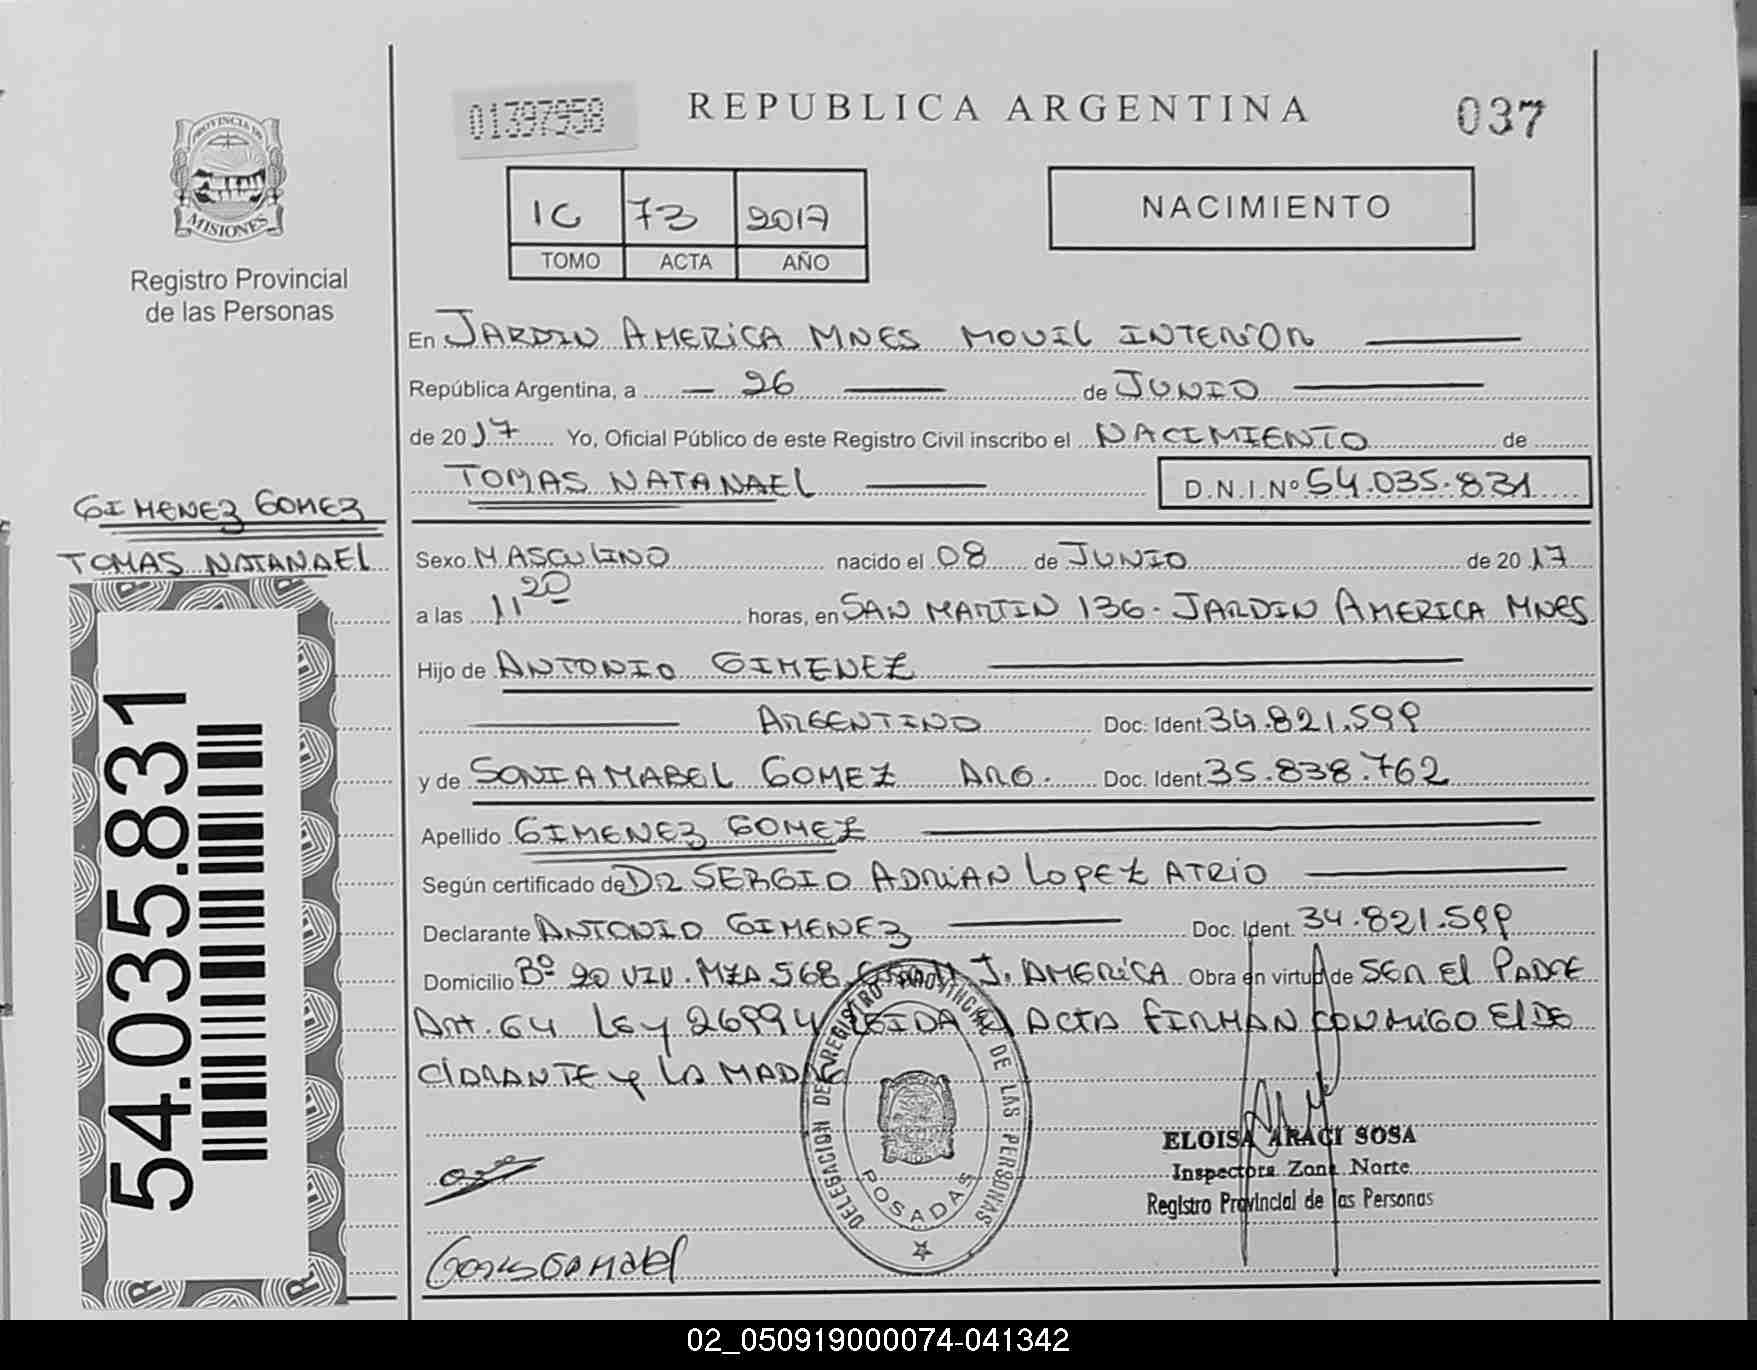 01397958
REPUBLICA ARGENTINA
037
PROVINCIA DE
MISIONES
Registro Provincial
de las Personas
1C 73 2017
TOMO ACTA AÑO
NACIMIENTO
En JARDIN AMERICA MNES MOVIL INTERIOR
República Argentina, a 26 de JUNIO
de 2017 Yo, Oficial Público de este Registro Civil inscribo el NACIMIENTO de
TOMAS NATANAEL D.N.I.Nº 54.035.831
GIMENEZ GOMEZ
TOMAS NATANAEL
54.035.831
Sexo MASCULINO nacido el 08 de JUNIO de 2017
a las 11 20 horas, en SAN MARTIN 136. JARDIN AMERICA MNES
Hijo de ANTONIO GIMENEZ
ARGENTINO Doc. Ident. 34.821.599
y de SONIA MABEL GOMEZ ARG. Doc. Ident. 35.838.762
Apellido GIMENEZ GOMEZ
Según certificado de DR SERGIO ADRIAN LOPEZ ATRIO
Declarante ANTONIO GIMENEZ Doc. Ident. 34.821.599
Domicilio Bº 20 VIV. MZA 568 J. AMERICA Obra en virtud de SER EL PADRE
Art. 64 Ley 26994 LEIDA EL ACTA FIRMAN CONMIGO El DE
ClARANTE y LA MADRE
DELEGACION DEL REGISTRO PROVINCIAL DE LAS PERSONAS
POSADAS
ELOISA ARACI SOSA
Inspectora Zona Norte
Registro Provincial de las Personas
02_050919000074-041342